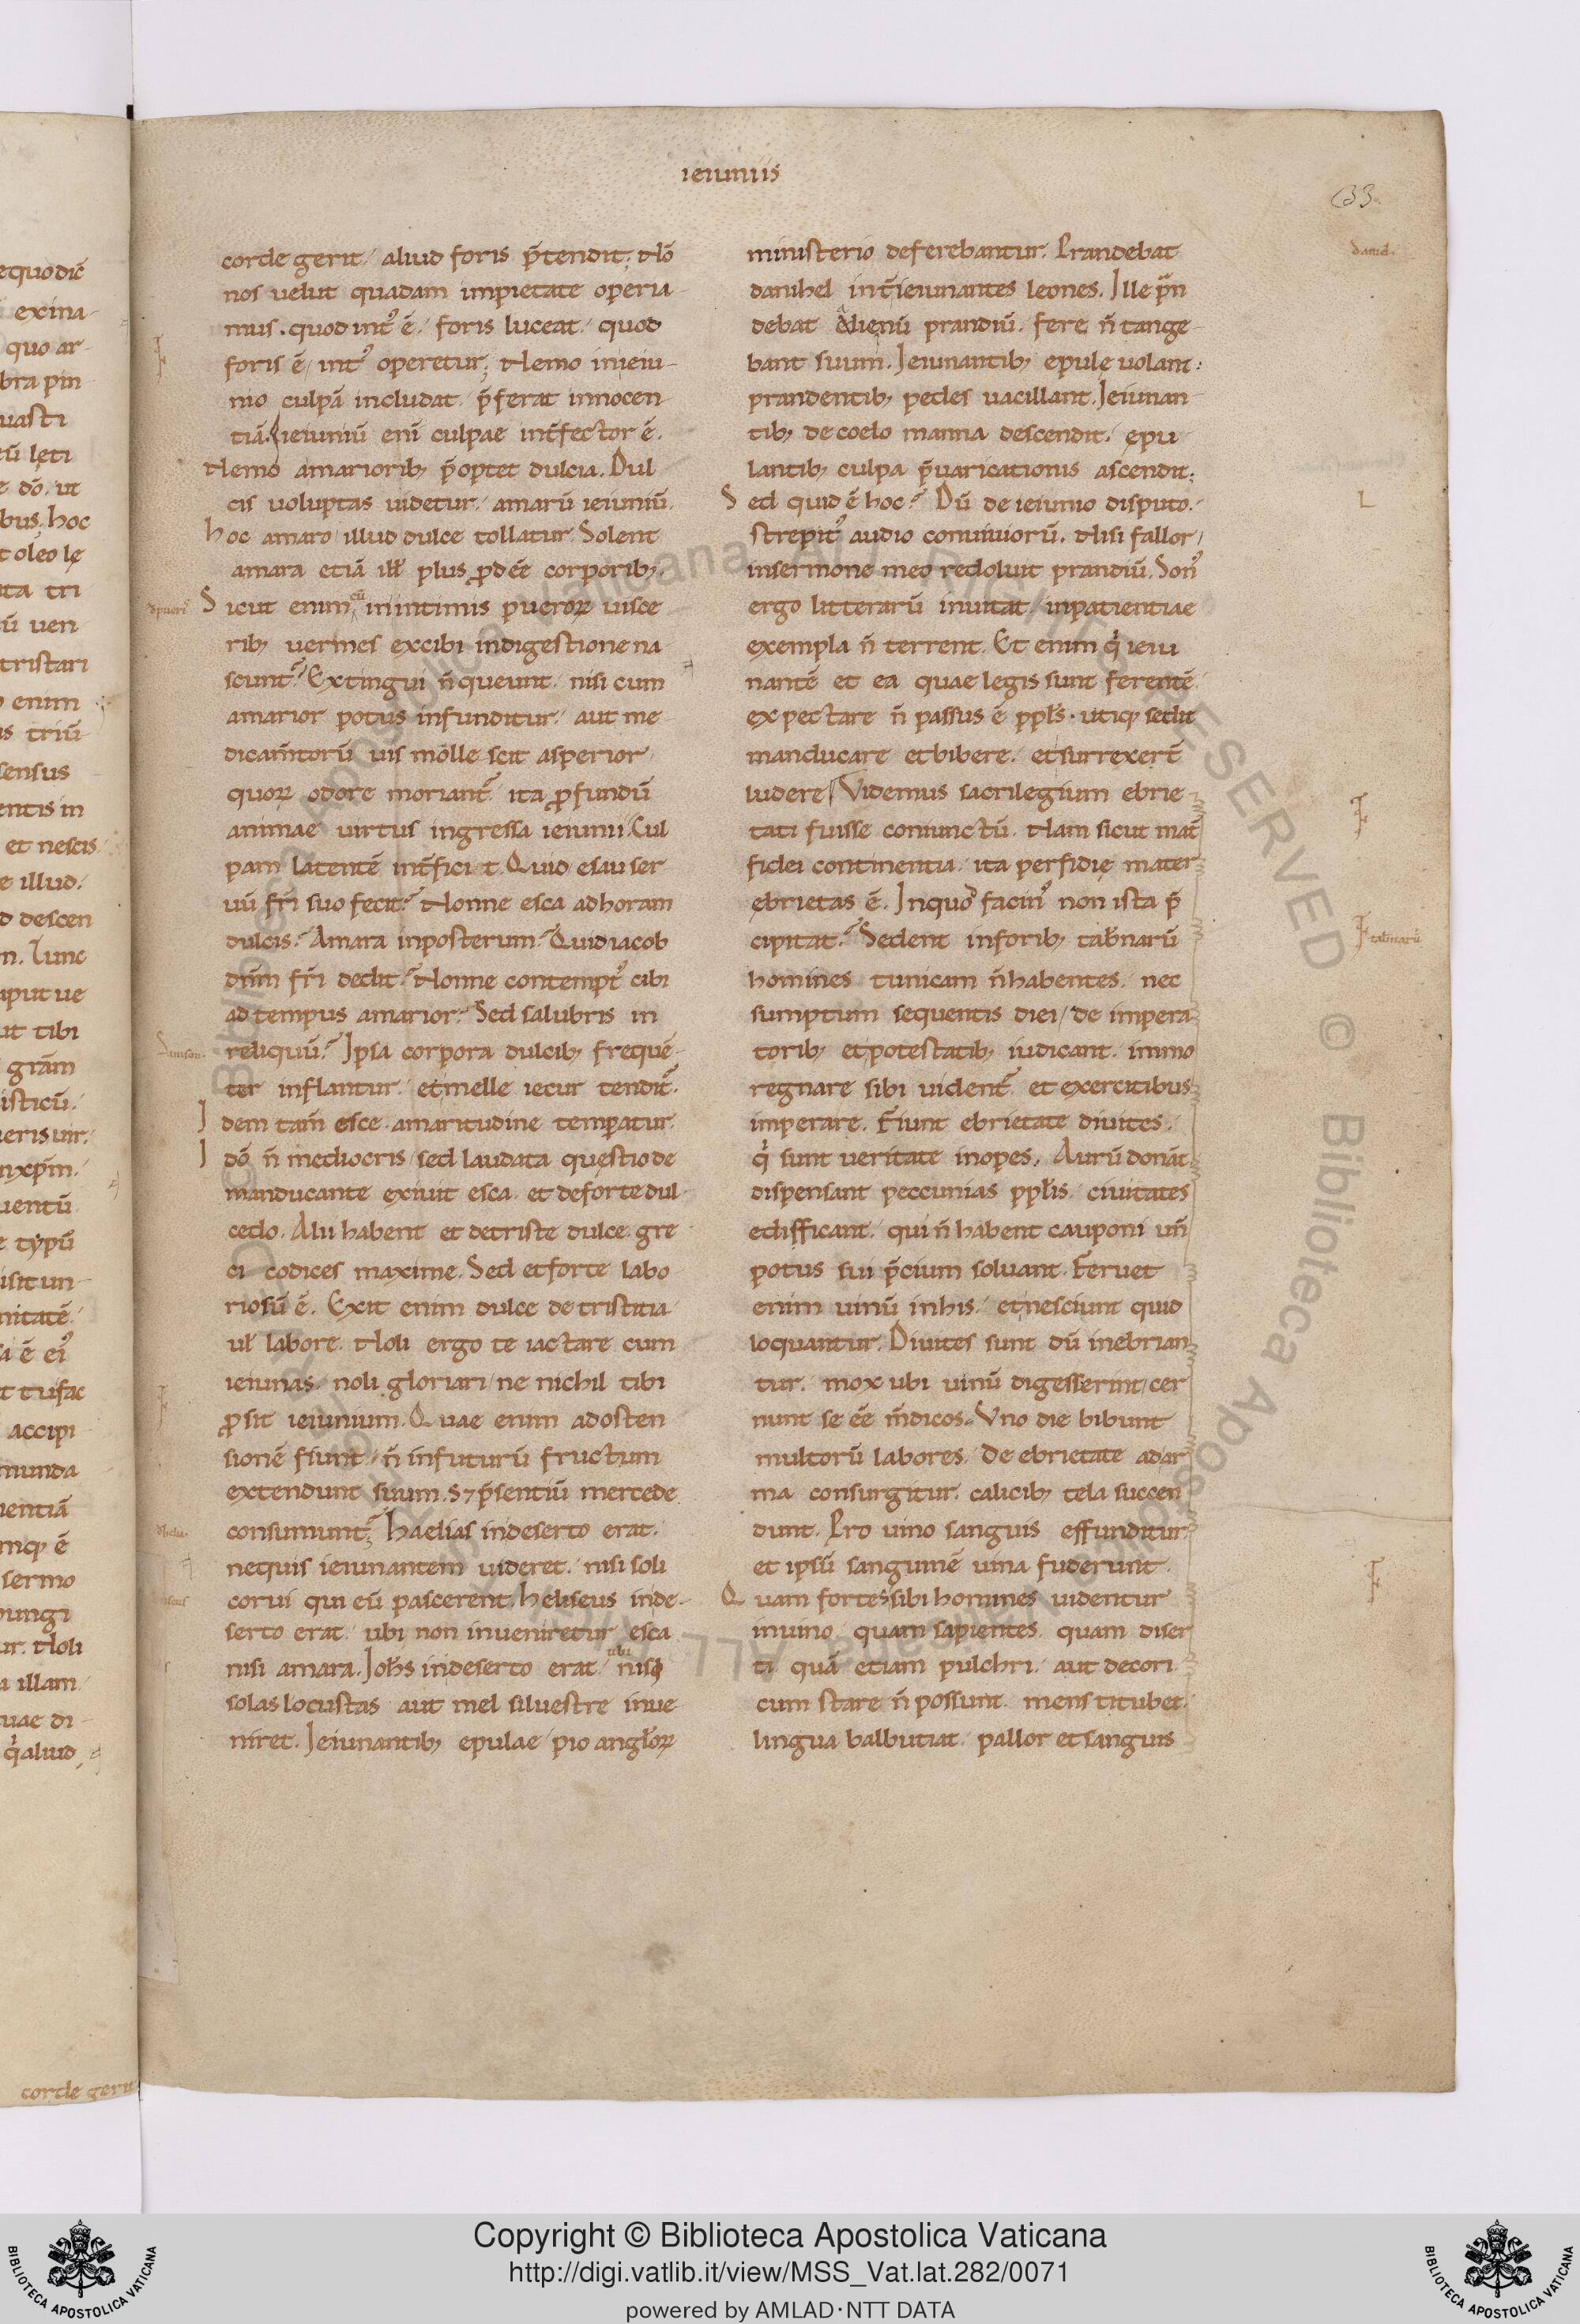 ieiuniis
33
corde gerit, aliud foris p̄tendit; Nō
nos velut quadam impietate operia-
mus. quod int᷒ ē, foris luceat, quod
foris ē, int᷒ operetur; Nemo in ieiu-
nio culpā includat, p̄ferat innocen
tiā. ieiuniū enī culpae int̄fector ē.
Nemo amariorib; p̄optet dulcia. Dul
cis voluptas uidetur, amarū ieiuniū.
hoc amaro illud dulce tollatur. Solent
amara etiā ill̄ plus ꝓdēe corporib;.
Sicut enim cū in intimis pueroꝝ uisce
rib; vermes ex cibi indigestione na
scunt̄? Extingui n̄ queunt, nisi cum
amarior potus infunditur, aut me
dicam̄torū uis molle scit asperior
quoꝝ odore moriant̄. ita ꝓfundū
animae virtus ingressa ieiunii. Cul
pam latentē int̄ficit. Quid esau ser
uū fr̄i suo fecit? Nonne esca ad horam
dulcis? Amara in posterum? Quid iacob
dn̄m fr̄i dedit? Nonne contempt᷒ cibi
ad tempus amarior? Sed salubris in
reliquū? Ipsa corpora dulcib; frequē-
ter inflantur, et melle iecur tendit̄.
Idem tam̄ esce amaritudine temperatur.
Idō n̄ mediocris sed laudata quęstio de
manducante exiuit esca, et de forte dul-
cedo. Alii habent et de triste dulce. gre
ci codices maxime. Sed et forte labo
riosū ē. Exit enim dulce de tristitia
ul̄ labore. Noli ergo te iactare cum
ieiunas, noli gloriari, ne nichil tibi
ꝓsit ieiunium. Quae enim ad osten
sionē fiunt, n̄ in futurū fructum
extendunt suum. S; p̄sentiū mercede
consumunt̄; haelias in deserto erat,
nequis ieiunantem uideret, nisi soli
corui qui eū pascerent. heliseus inde-
serto erat, ubi non inveniretur esca
nisi amara. Joh̄s in deserto erat, ubi nisi
solas locustas aut mel silvestre inve
niret. Ieiunantib; epulae pio angl̄oꝝ
ministerio deferebantur. Prandebat
danihel int̄ ieiunantes leones. Ille p̄n
debat alienū prandiū, fere n̄ tange-
bant suum. Ieiunantib; epulę uolant:
prandentib; pedes uacillant. Ieiunan-
tib; de coelo manna descendit, epu
lantib; culpa p̄uaricationis ascendit;
Sed quid ē hoc? Dū de ieiunio disputo,
strepit᷒ audio conviviorū. Nisi fallor,
in sermone meo redoluit prandiū. Son᷒
ergo litterarū invitat, inpatientiae
exempla n̄ terrent. Et enim q̇ ieiu
nantē et ea quae legis sunt ferentē
expectare n̄ passus ē ppl̄s. utiq; sedit
manducare et bibere, et surrexert̄
ludere. Videmus sacrilegium ebrie-
tati fuisse coniunctū. Nam sicut mat̄
fidei continentia, ita perfidię mater
ebrietas ē. In quo facin᷒ non ista p̄
cipitat? Sedent in forib; tab̄narū
homines tunicam n̄ habentes, nec
sumptum sequentis diei, de impera
torib; et potestatib; iudicant, immo
regnare sibi uident̄ et exercitibus
imperare. Fiunt ebrietate divites,
q̇ sunt veritate inopes. Aurū donāt,
dispensant peccunias ppl̄is, civitates
edifficant, qui n̄ habent cauponi un̄
potus sui p̄cium soluant. Feruet
enim uinū in his, et nesciunt quid
loquantur. Divites sunt dū inebrian
tur, mox ubi uinū digesserint, cer
nunt se ēe m̄dicos. Vno die bibunt
multorū labores. De ebrietate ad ar
ma consurgitur, calicib; tela succen
dunt. Pro uino sanguis effunditur
et ipsū sanguinē uina fuderunt.
Quam fortes sibi homines uidentur
in uino, quam sapientes, quam diser
ti quā etiam pulchri, aut decori
cum stare n̄ possunt, mens titubet,
lingua balbutiat, pallor et sanguis
Copyright © Biblioteca Apostolica Vaticana
http://digi.vatlib.it/view/MSS_Vat.lat.282/0071
powered by AMLAD·NTT DATA
BIBLIOTECA APOSTOLICA VATICANA
BIBLIOTECA APOSTOLICA VATICANA